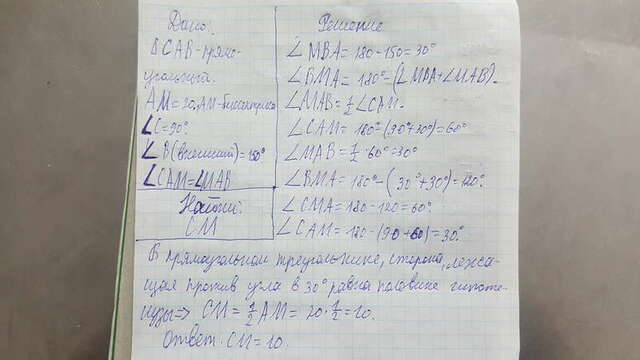 Дано:
ΔCAB - прямо-
угольный
AM = 20, AM - биссектриса
∠C = 90°
∠B (внешний) = 150°
∠CAM = ∠MAB
Найти:
CM
Решение
∠MBA = 180 - 150 = 30°
∠BMA = 180° - (∠MBA + ∠MAB) =
∠MAB = ½ ∠CAM =
∠CAM = 180° (30° + 90) = 60°
∠MAB = ½ · 60° = 30°
∠BMA = 180° - (30° + 30°) = 120°
∠CMA = 180 - 120 = 60°
∠CAM = 180 - (90 + 60) = 30°
В прямоугольном треугольнике, сторона, лежа-
щая против угла в 30°, равна половине гипоте-
нузы => CM = ½ AM = 20 · ½ = 10.
Ответ: CM = 10